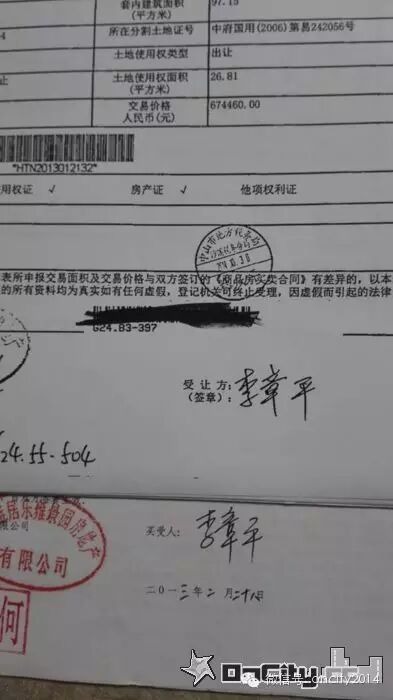 套内建筑面积 97.15
(平方米)
4 所在分割土地证号 中府国用(2006)第易242056号
土地使用权类型 出让
止 土地使用权面积 26.81
(平方米)
交易价格 674460.00
人民币(元)
*HTN2013012132*
用权证 √ 房产证 √ 他项权利证
中山市地方税务局
表所申报交易面积及交易价格与双方签订的《商品房买卖合同》有差异的，以本
的所有资料均为真实如有任何虚假，登记机关可终止受理，因虚假而引起的法律
624.83-397
受让方： 李章平
(签章)：
24.55-504
买受人： 李章平
昆乐雍景园房地产
有限公司
二〇一三年二月二十八日
何
OnCity
微信号: oncity2014